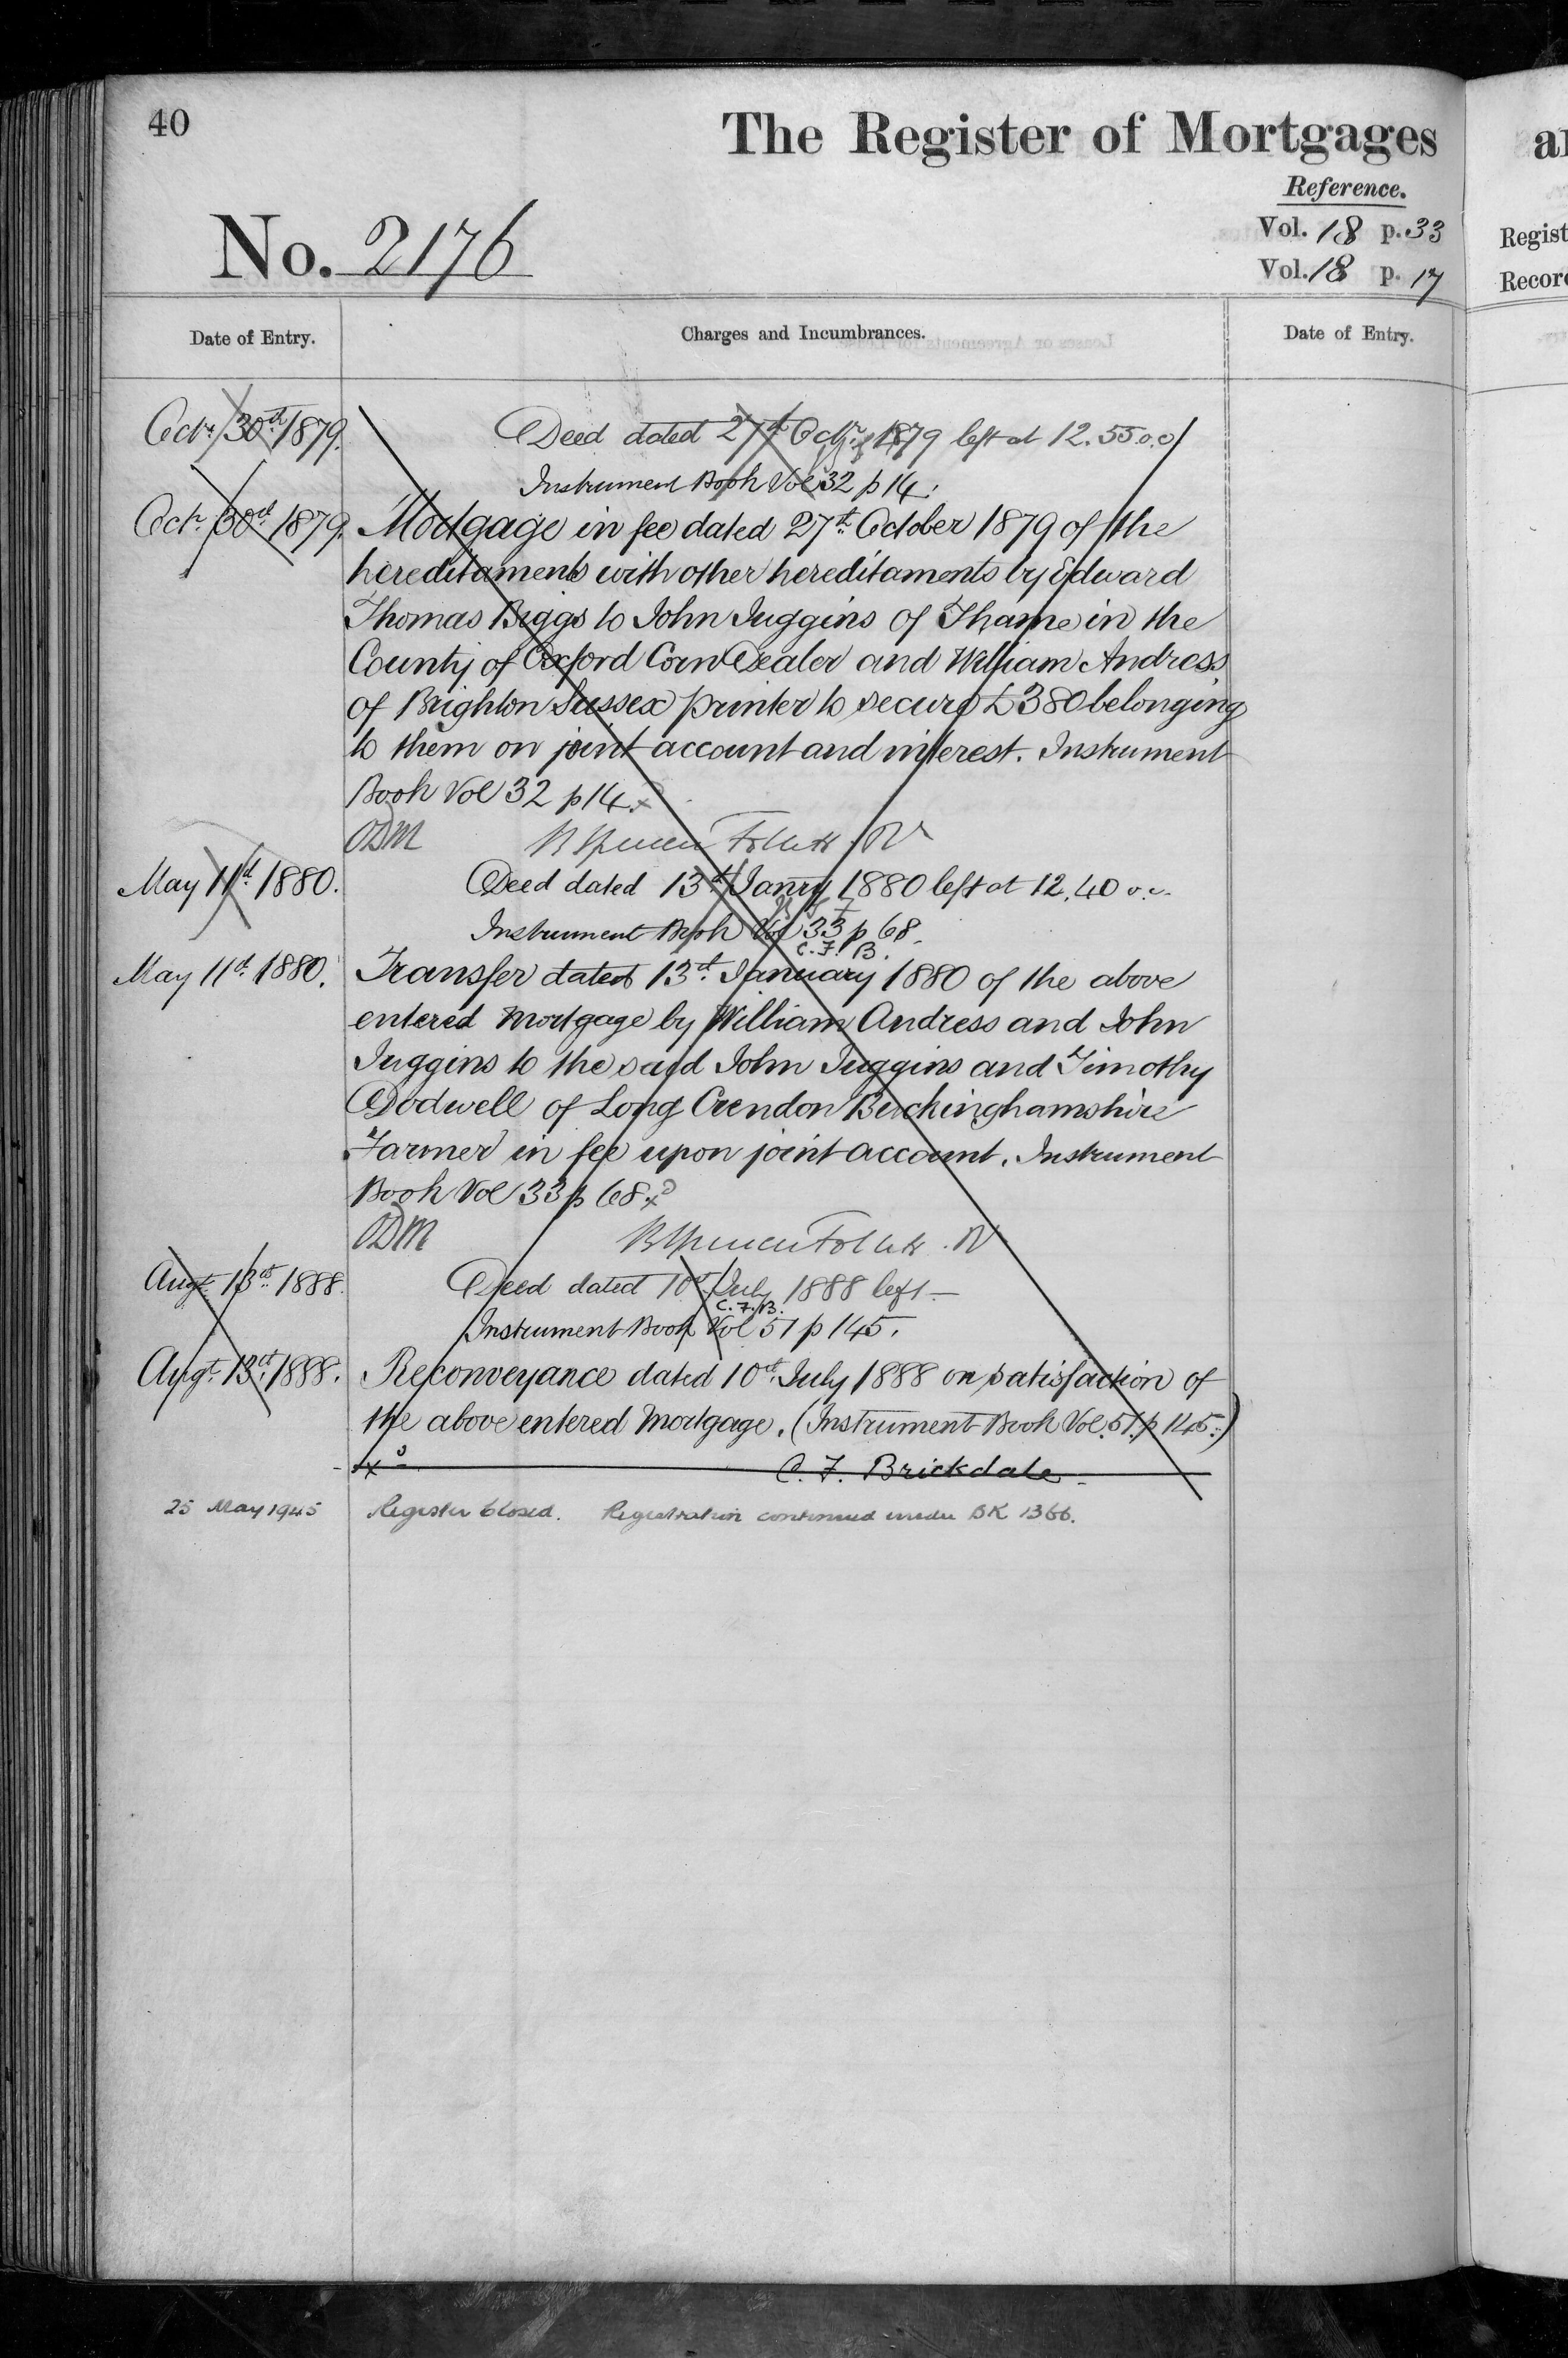 40
The Register of Mortgages
Reference.
No. 2176
Vol. 18 p. 33
Vol. 18 p. 17
Regist
Record
Date of Entry. Charges and Incumbrances. Date of Entry.
Octr. 30th 1879. Deed dated 27th Octr. 1879 left at 12.55 o.c
Instrument Book Vol 32 p 14.
Octr. 30th 1879. Mortgage in fee dated 27th October 1879 of the
hereditaments with other hereditaments by Edward
Thomas Biggs to John Juggins of Thame in the
County of Oxford Corn Dealer and William Andress
of Brighton Sussex printer to secure £380 belonging
to them on joint account and interest. Instrument
Book Vol 32 p 14. x
ODM R Spencer Follett. R
May 11th 1880. Deed dated 13th Janry 1880 left at 12.40 o.c.
Instrument Book Vol 33 p 68.
C. F. B.
May 11th 1880. Transfer dated 13th January 1880 of the above
entered Mortgage by William Andress and John
Juggins to the said John Juggins and Timothy
Dodwell of Long Crendon Buckinghamshire
Farmer in fee upon joint account. Instrument
Book Vol 33 p 68. x
ODM R Spencer Follett. R
Augt. 13th 1888. Deed dated 10th July 1888 left
C. F. B.
Instrument Book Vol 51 p 145.
Augt. 13th 1888. Reconveyance dated 10th July 1888 on satisfaction of
the above entered Mortgage. (Instrument Book Vol. 51. p 145.)
x C. F. Brickdale
25 May 1945 Register Closed. Registration continued under BK 1366.